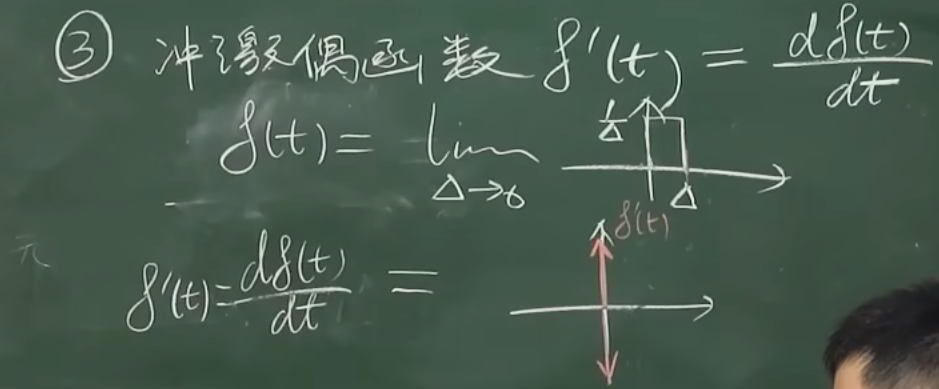 ③ 冲激偶函数 δ'(t) = dδ(t)/dt
δ(t) = lim Δ→0 1/Δ Δ
δ'(t)
δ'(t) = dδ(t)/dt =